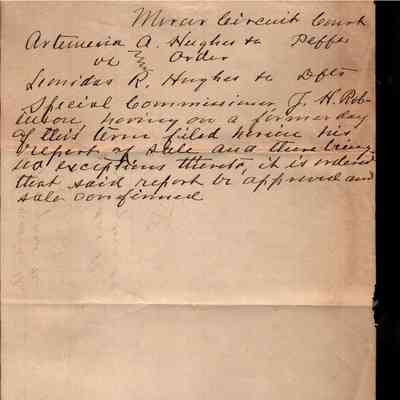 Circuit Court
Artemesia A. Hughes &c Peffs
vs Order
Leonidas R. Hughes &c Defts
Special Commissioner J. H. Rob-
inson having on a former day
of this term filed herein his
report of sale and there being
no exceptions thereto, it is ordered
that said report be approved and
sale confirmed